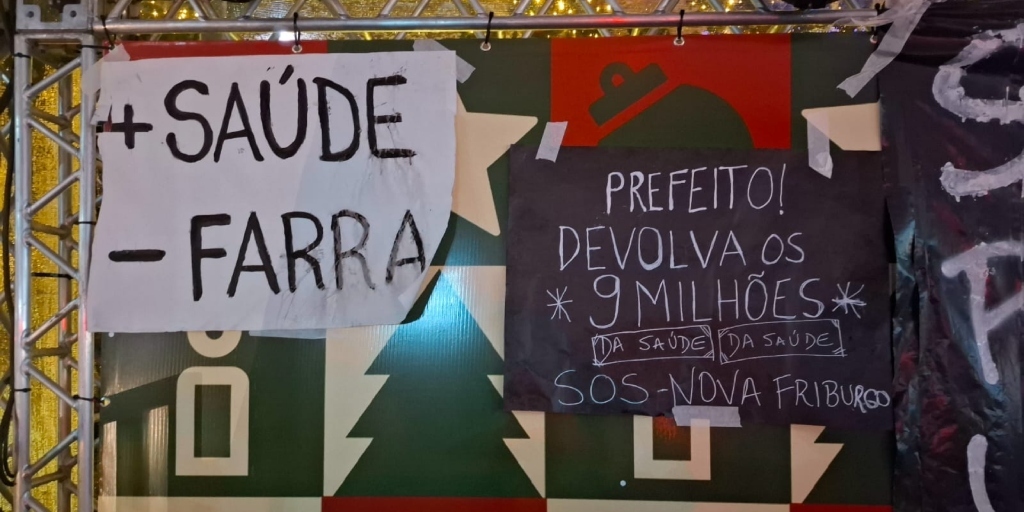 + SAÚDE
- FARRA
PREFEITO!
DEVOLVA OS
* 9 MILHÕES *
DA SAÚDE DA SAÚDE
SOS - NOVA FRIBURGO